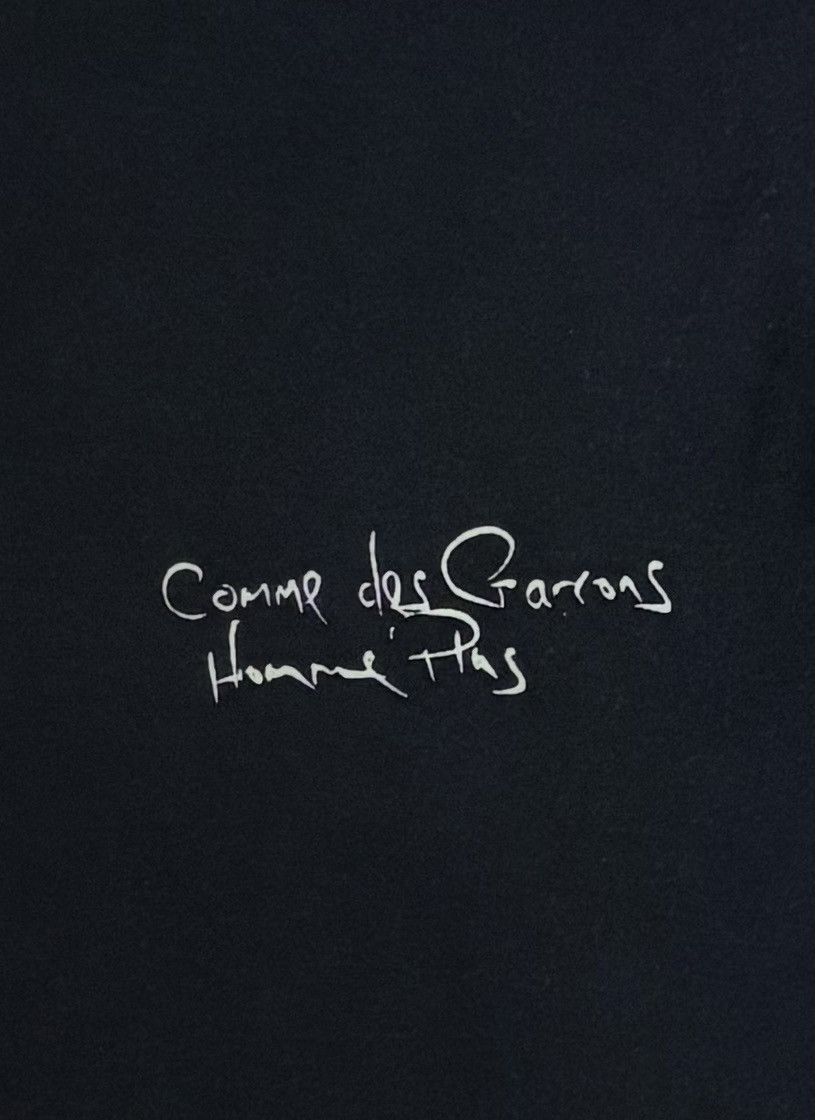 Comme des Garcons
Homme Plus